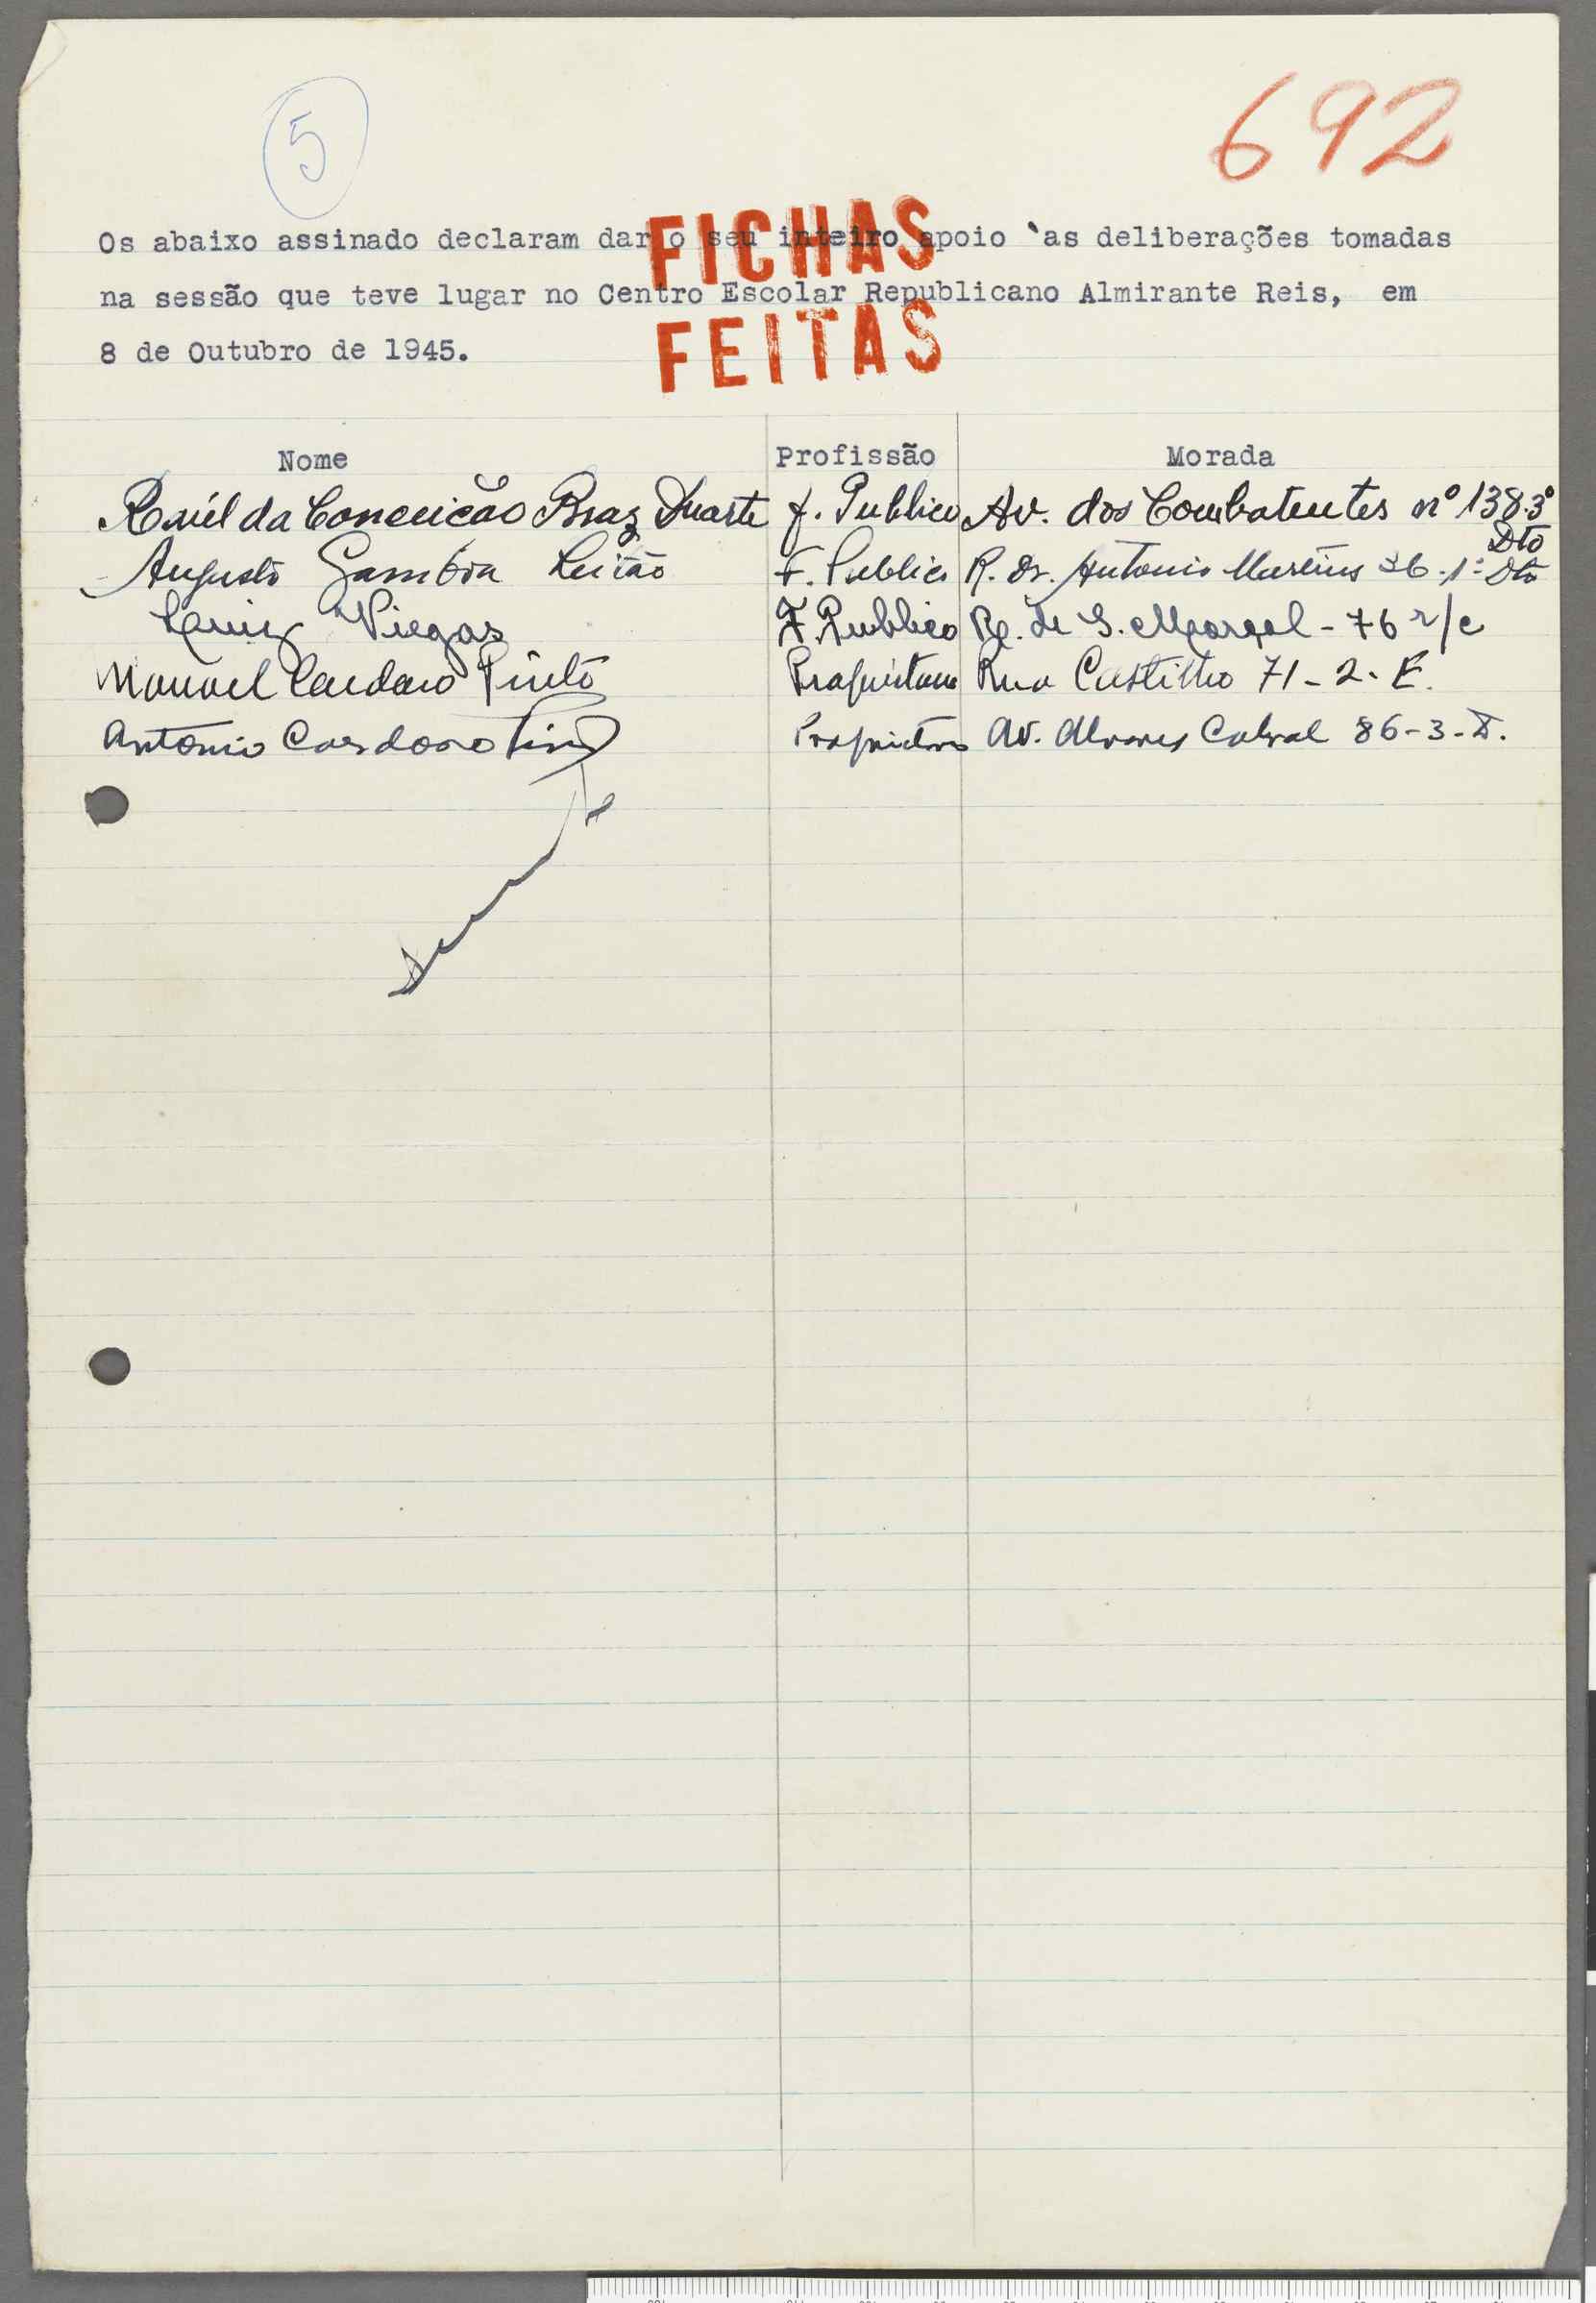 5
692
FICHAS
FEITAS
Os abaixo assinado declaram dar o seu inteiro apoio `as deliberações tomadas
na sessão que teve lugar no Centro Escolar Republicano Almirante Reis, em
8 de Outubro de 1945.
Nome Profissão Morada
Raúl da Conceição Braz Duarte f. Publico Av. dos Combatentes nº 138.3º Dto
Augusto Gamboa Leitão F. Publico R. Dr. Antonio Martins 36-1º Dto
Luiz Viegas F. Publico R. de S. Marçal - 76 r/c
Manuel Cardoso Pinto Proprietario Rua Castilho 71-2. E.
Antonio Cardoso Pinto Proprietario Av. Alvares Cabral 86-3-D.